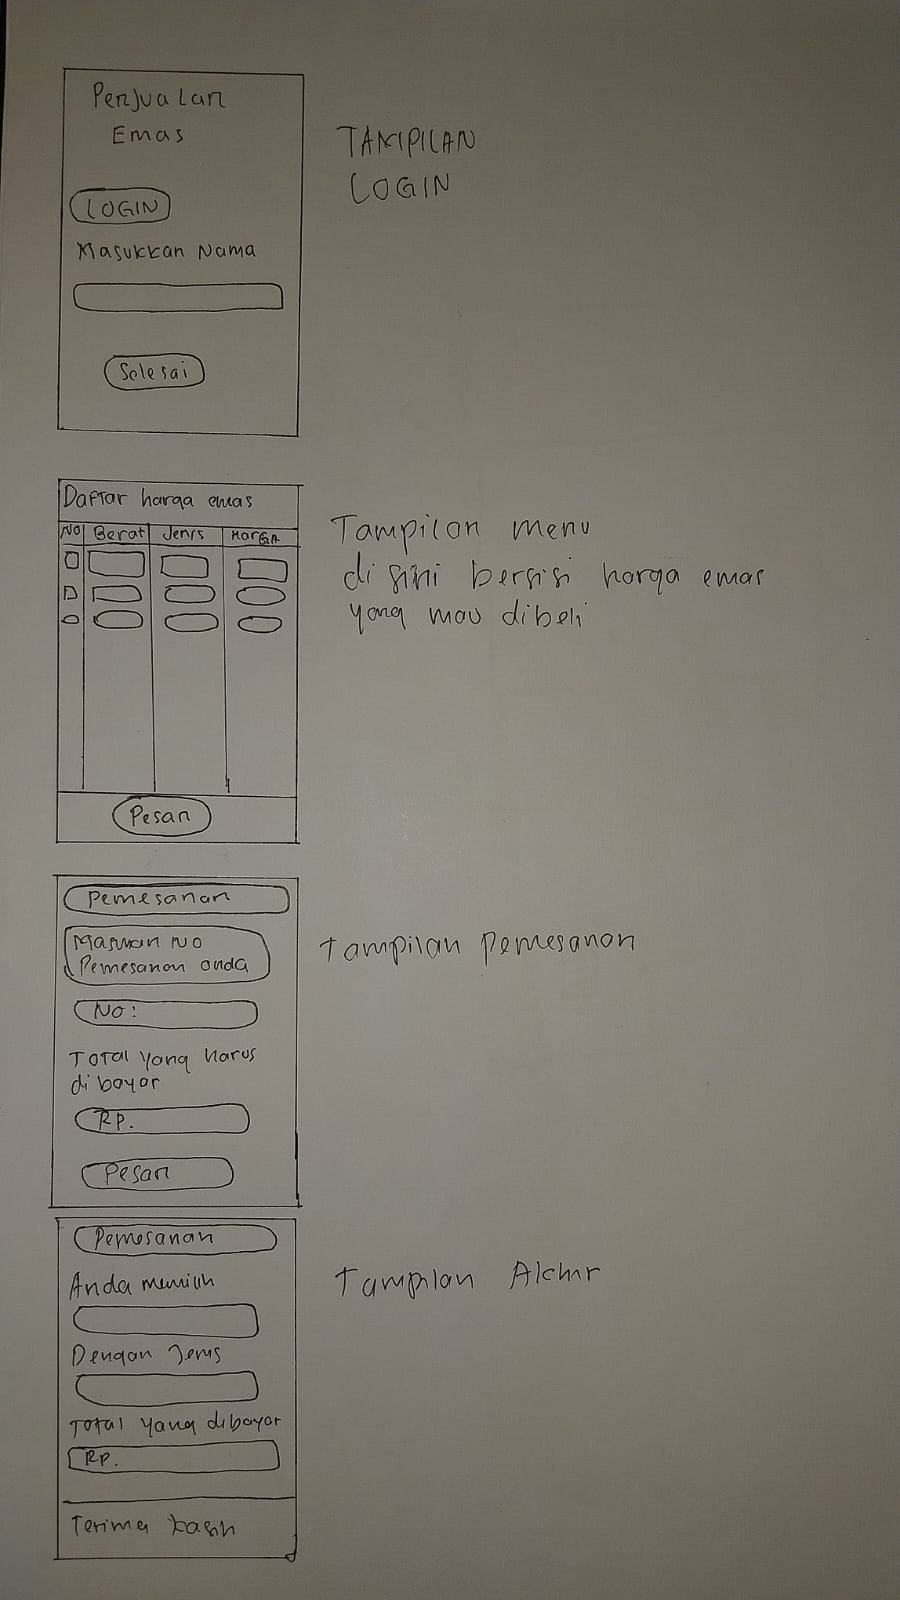 Penjualan
Emas
LOGIN
Masukkan Nama
Selesai
TAMPILAN
LOGIN
Daftar harga emas
No Berat Jenis HarGA
Pesan
Tampilan menu
di sini bersisi harga emas
yang mau dibeli
Pemesanan
Masukan No
Pemesanan anda
No:
Total yang harus
di bayar
RP.
Pesan
Tampilan Pemesanan
Pemesanan
Anda memilih
Dengan Jenis
Total yang dibayar
RP.
Terima kasih
Tampilan Akhir